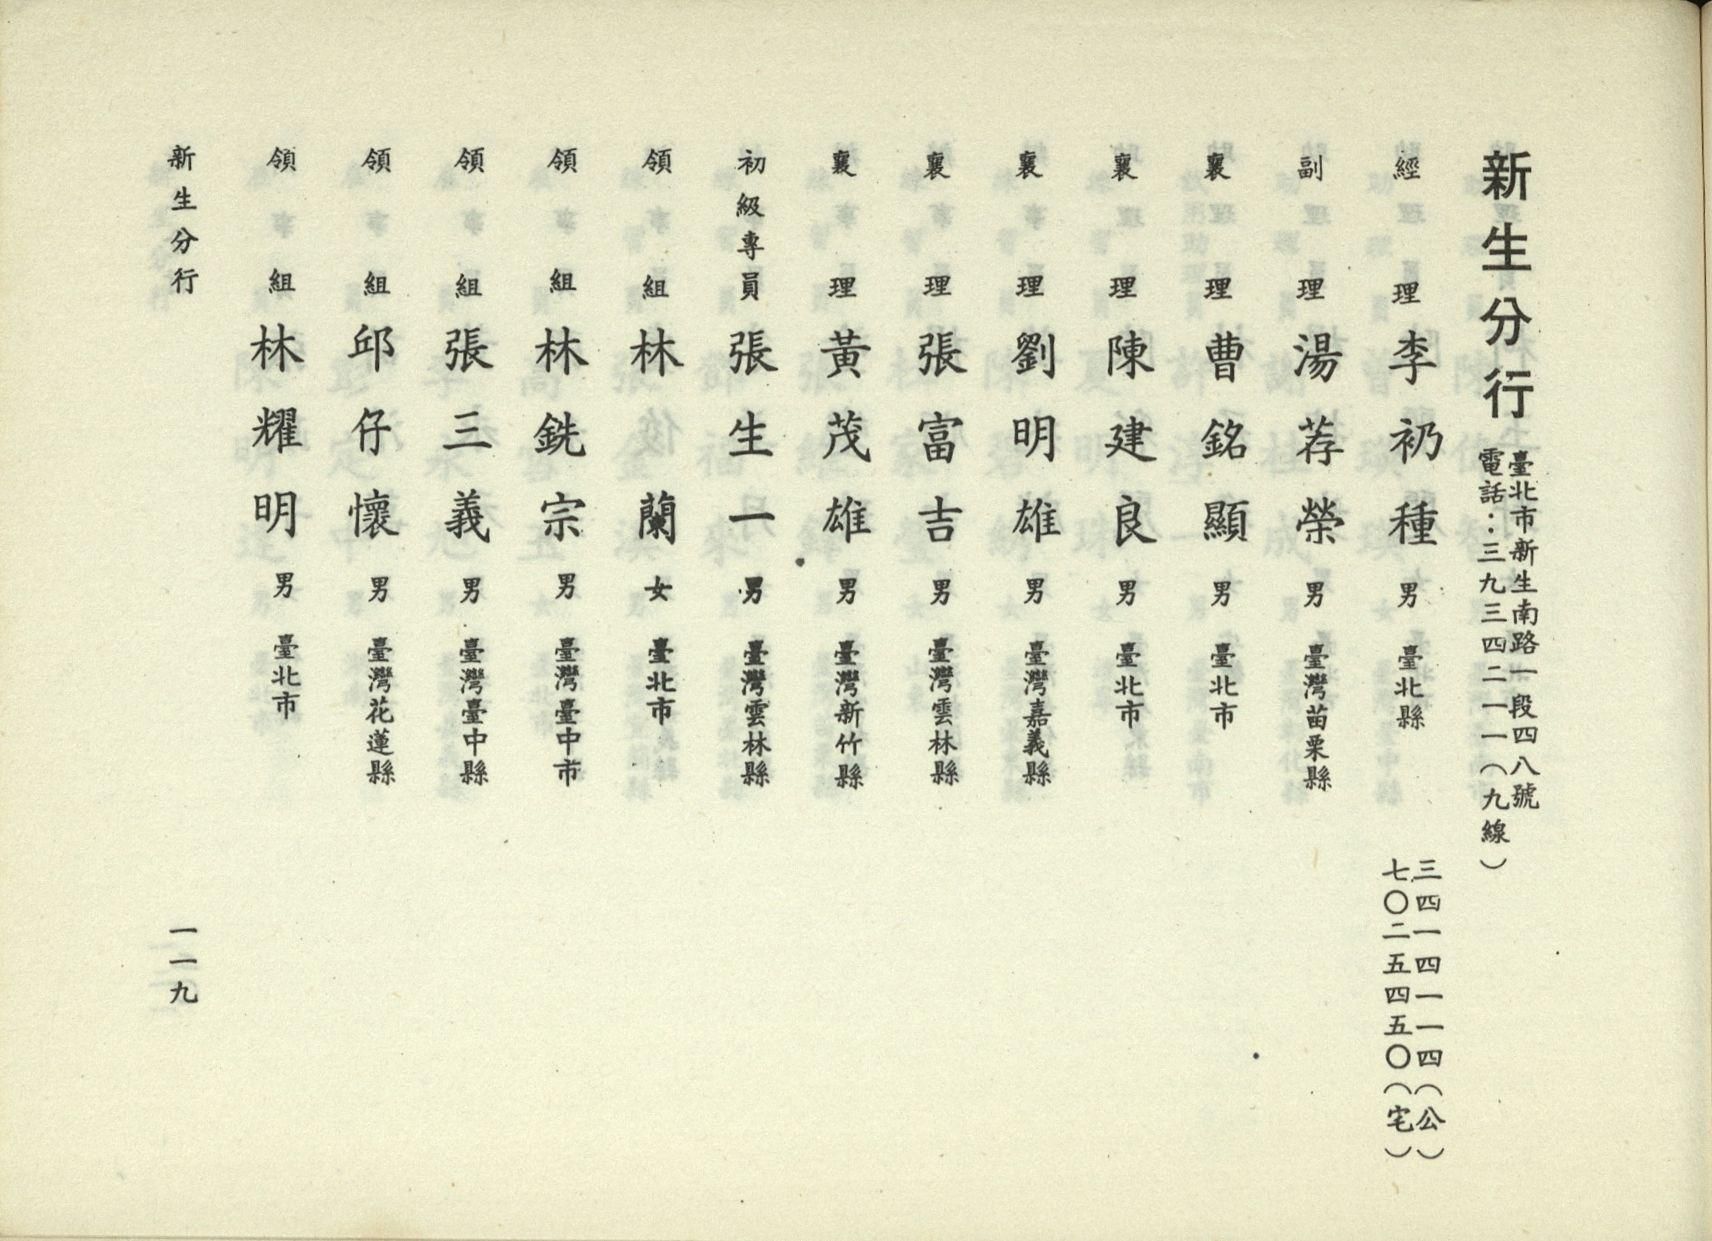 新生分行
臺北市新生南路一段四八號
電話：三九三四二一一（九線）
經理 李礽種 男 臺北縣
三四一四一一四（公）
七〇二五四五〇（宅）
副理 湯荐榮 男 臺灣苗栗縣
襄理 曹銘顯 男 臺北市
襄理 陳建良 男 臺北市
襄理 劉明雄 男 臺灣嘉義縣
襄理 張富吉 男 臺灣雲林縣
襄理 黃茂雄 男 臺灣新竹縣
初級專員 張生一 男 臺灣雲林縣
領組 林蘭 女 臺北市
領組 林銑宗 男 臺灣臺中市
領組 張三義 男 臺灣臺中縣
領組 邱仔懷 男 臺灣花蓮縣
領組 林耀明 男 臺北市
新生分行
一一九